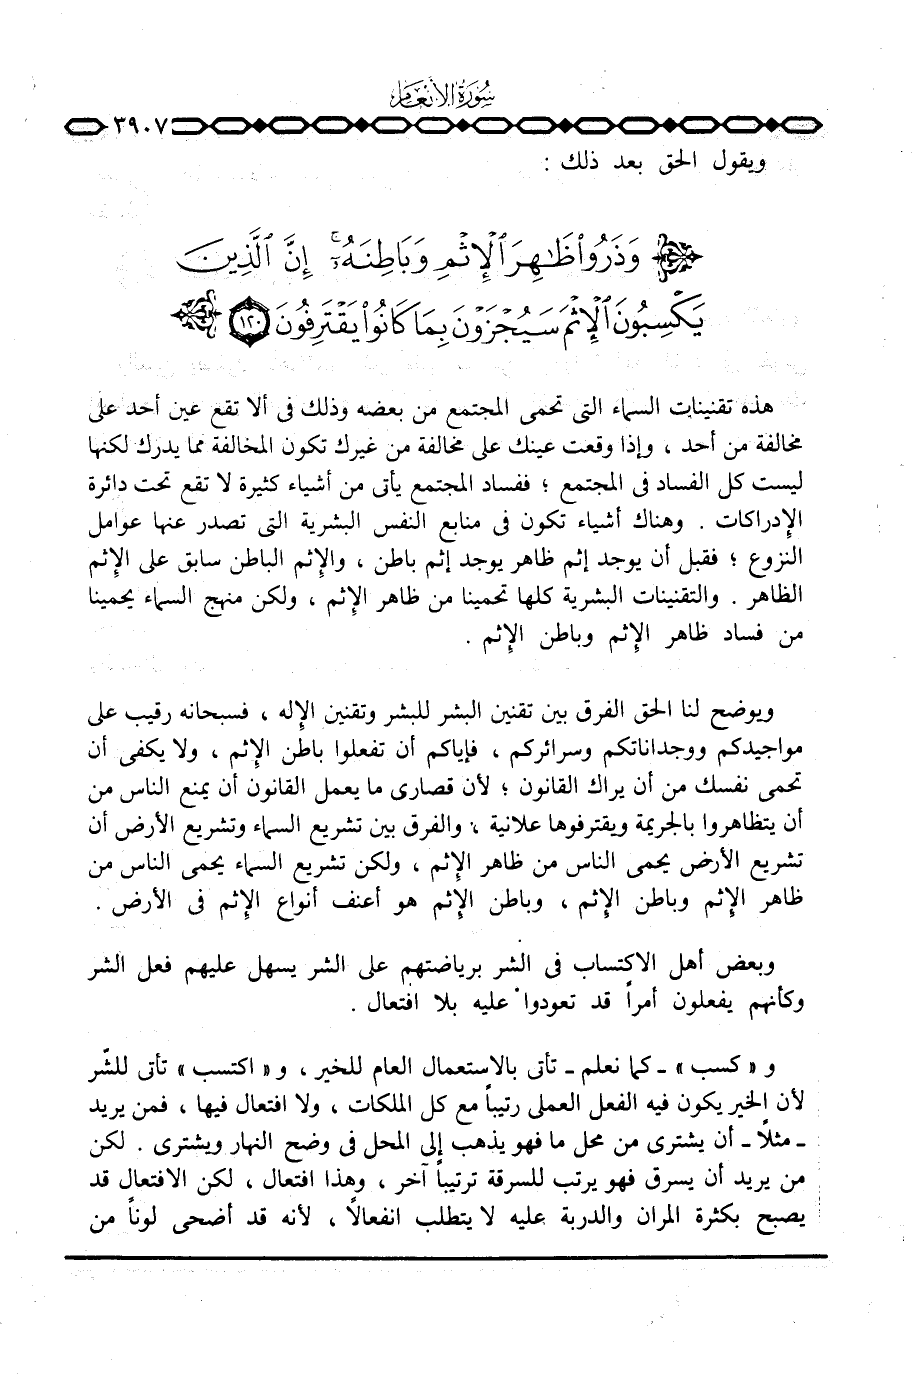 سُورَةُ الأَنْعَام
٣٩٠٧
ويقول الحق بعد ذلك :
وَذَرُواْ ظَٰهِرَ ٱلْإِثْمِ وَبَاطِنَهُۥٓ ۚ إِنَّ ٱلَّذِينَ
يَكْسِبُونَ ٱلْإِثْمَ سَيُجْزَوْنَ بِمَا كَانُواْ يَقْتَرِفُونَ ١٢٠
هذه تقنينات السماء التى تحمى المجتمع من بعضه وذلك فى ألا تقع عين أحد على
مخالفة من أحد ، وإذا وقعت عينك على مخالفة من غيرك تكون المخالفة مما يدرك لكنها
ليست كل الفساد فى المجتمع ؛ ففساد المجتمع يأتى من أشياء كثيرة لا تقع تحت دائرة
الإدراكات . وهناك أشياء تكون فى منابع النفس البشرية التى تصدر عنها عوامل
النزوع ؛ فقبل أن يوجد إثم ظاهر يوجد إثم باطن ، والإثم الباطن سابق على الإثم
الظاهر . والتقنينات البشرية كلها تحمينا من ظاهر الإثم ، ولكن منهج السماء يحمينا
من فساد ظاهر الإثم وباطن الإثم .
ويوضح لنا الحق الفرق بين تقنين البشر للبشر وتقنين الإله ، فسبحانه رقيب على
مواجيدكم ووجداناتكم وسرائركم ، فإياكم أن تفعلوا باطن الإثم ، ولا يكفى أن
تحمى نفسك من أن يراك القانون ؛ لأن قصارى ما يعمل القانون أن يمنع الناس من
أن يتظاهروا بالجريمة ويقترفوها علانية ، والفرق بين تشريع السماء وتشريع الأرض أن
تشريع الأرض يحمى الناس من ظاهر الإثم ، ولكن تشريع السماء يحمى الناس من
ظاهر الإثم وباطن الإثم ، وباطن الإثم هو أعنف أنواع الإثم فى الأرض .
وبعض أهل الاكتساب فى الشر برياضتهم على الشر يسهل عليهم فعل الشر
وكأنهم يفعلون أمراً قد تعودوا عليه بلا افتعال .
و « كسب » ـ كما نعلم ـ تأتى بالاستعمال العام للخير ، و « اكتسب » تأتى للشّر
لأن الخير يكون فيه الفعل العملى رتيباً مع كل الملكات ، ولا افتعال فيها ، فمن يريد
ـ مثلاً ـ أن يشترى من محل ما فهو يذهب إلى المحل فى وضح النهار ويشترى . لكن
من يريد أن يسرق فهو يرتب للسرقة ترتيباً آخر ، وهذا افتعال ، لكن الافتعال قد
يصبح بكثرة المران والدربة عليه لا يتطلب انفعالاً ، لأنه قد أضحى لوناً من